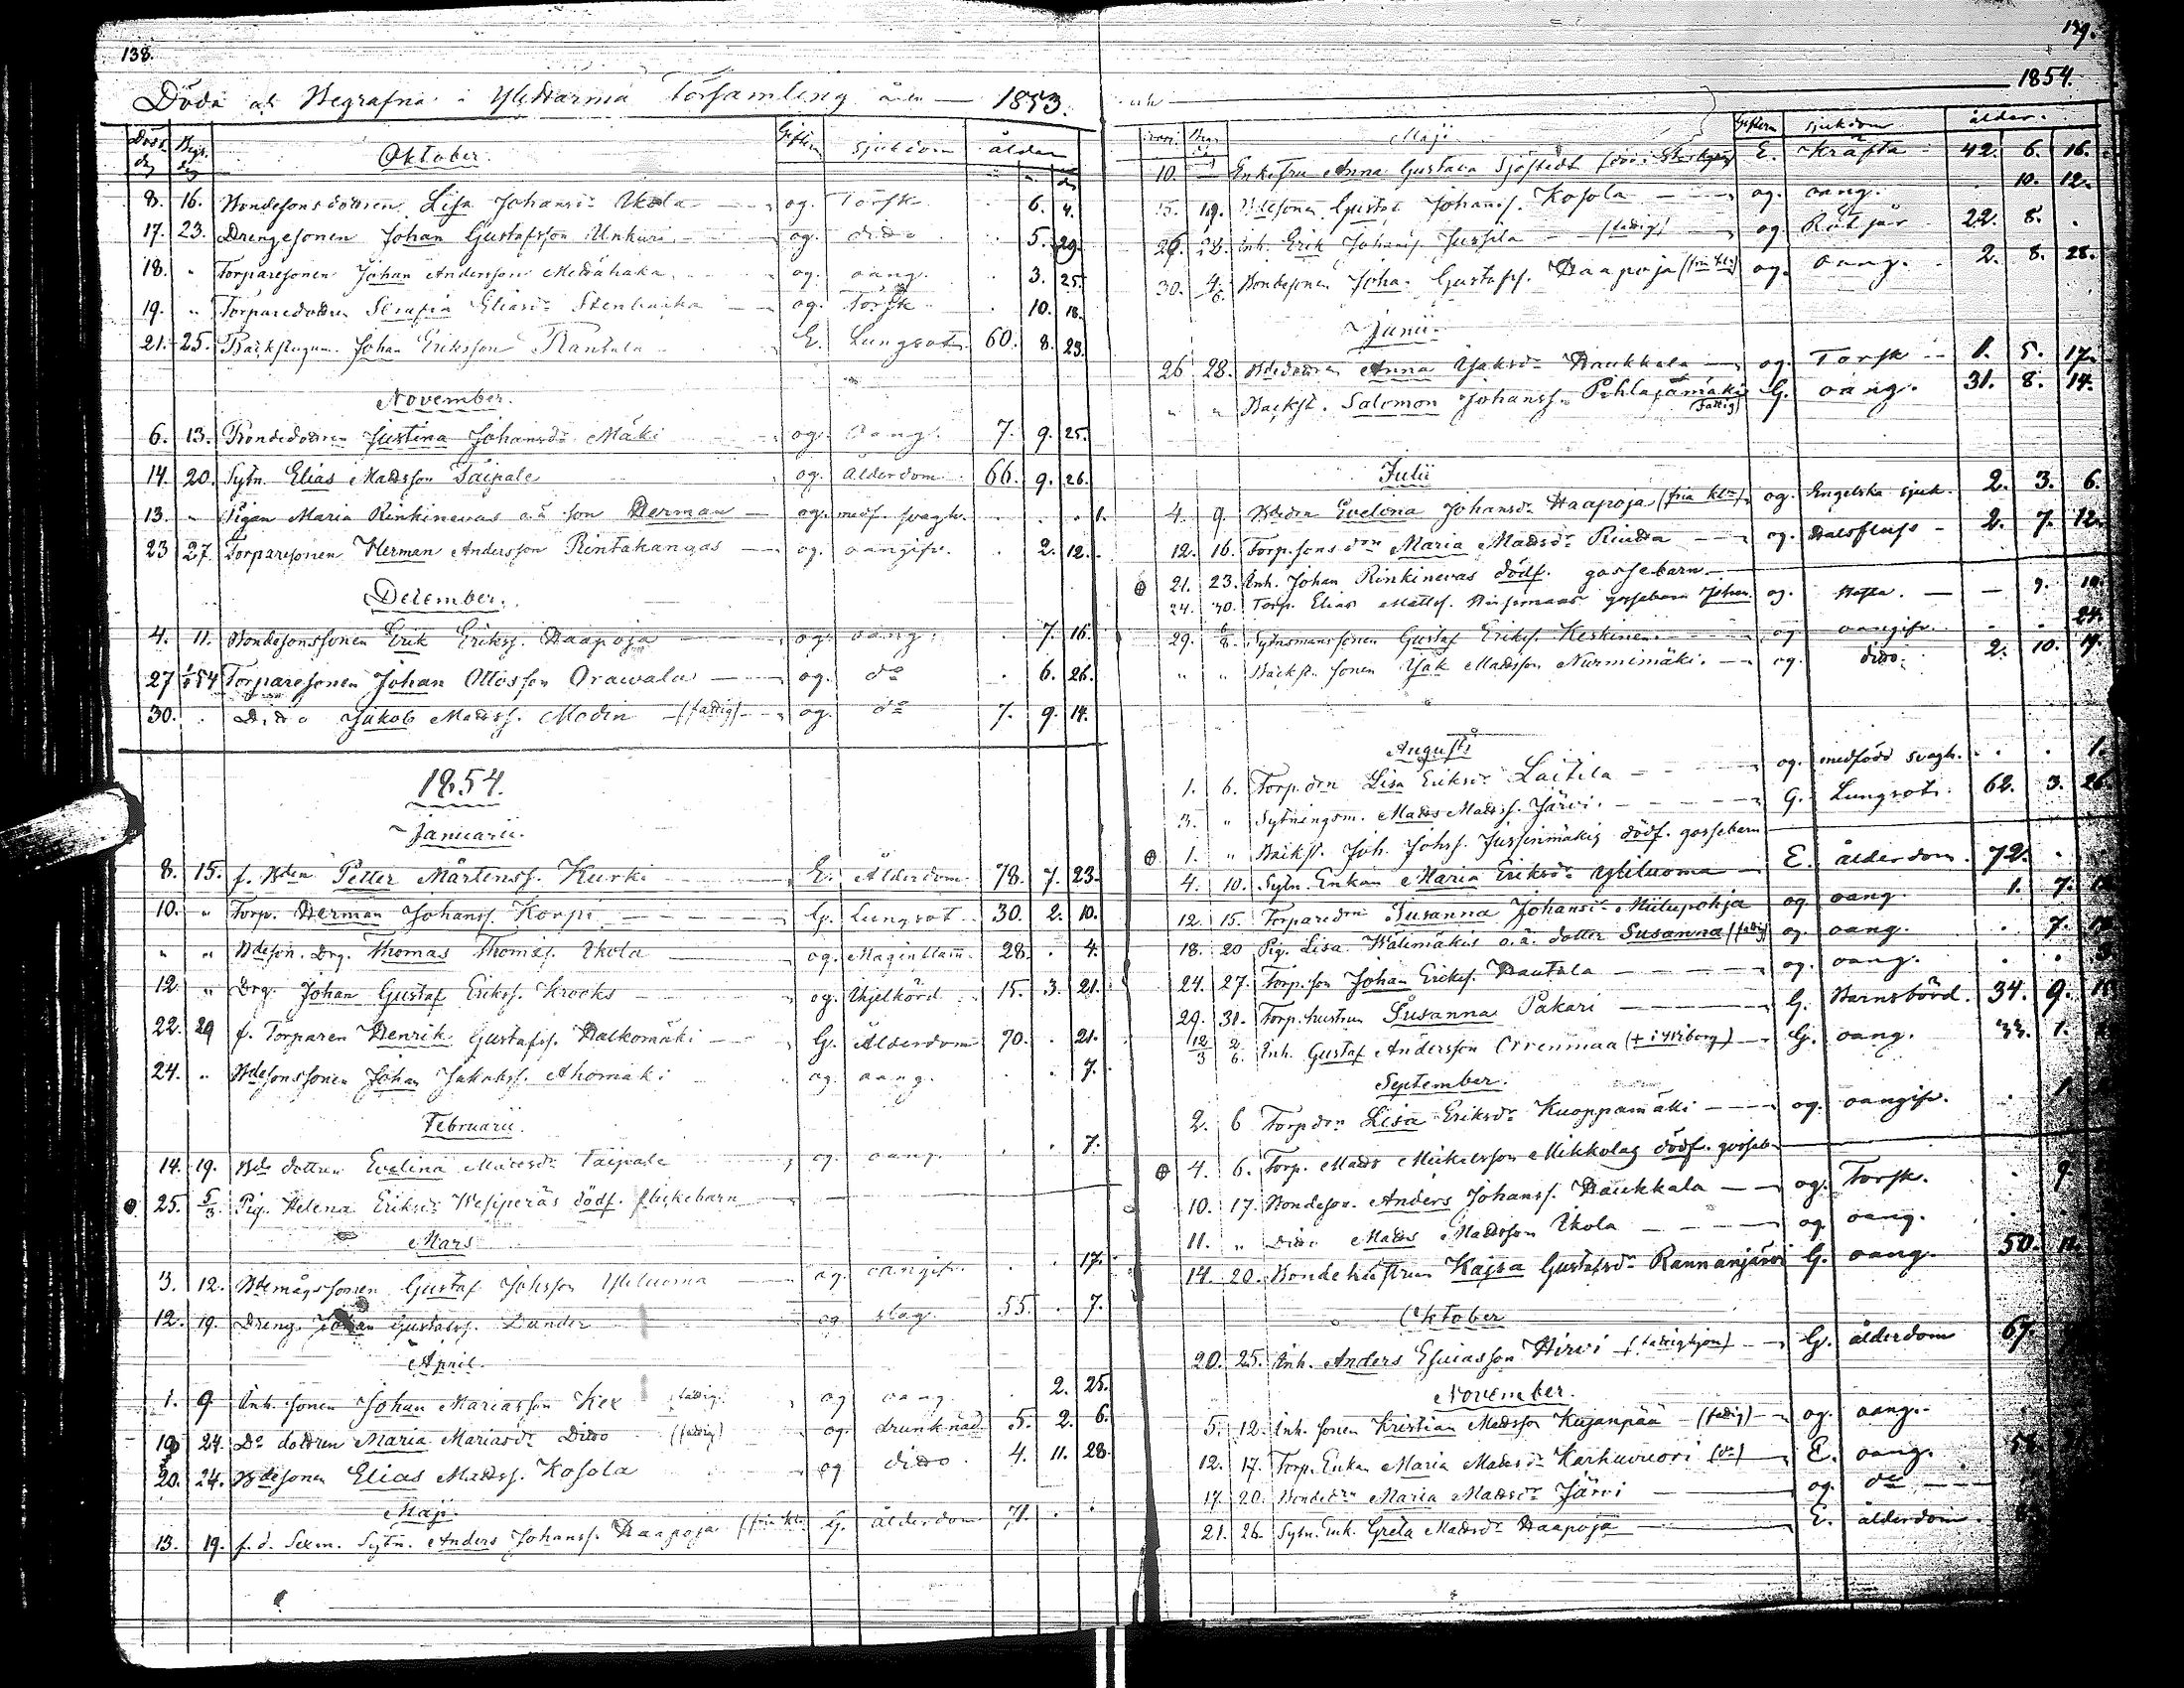 138.
Döda och Begrafna i Ylihärmä Församling åren — 1853.
Döds dag Begr. dag Oktober. Giften sjukdom ålder
8. 16. Bondesonsdottren Lisa Johansdr Ikola og. Torsk 6. 4.
17. 23. Drengesonen Johan Gustafsson Unkuri og. dido 5. 29.
18. " Torparesonen Johan Andersson Metsähaka og. oang. 3. 25.
19. " Torparedottren Serafia Eliasdr Stenbacka og. Torsk 10. 18.
21. 25. Backstugum. Johan Eriksson Rantala E. Lungsot. 60. 8. 23.
November.
6. 13. Bondedottren Justina Johansdr Mäki og. oang. 7. 9. 25.
14. 20. Sytn. Elias Mattsson Taipale og. ålderdom 66. 9. 26.
13. " Pigan Maria Rinkinevas o.ä. son Herman — og. medf. svagh. . . 1.
23 27. Torparesonen Herman Andersson Rintakangas — og. oangifv. . 2. 12.
December.
4. 11. Bondesonssonen Erik Erikss. Haapoja og. oang. . 7. 16.
27 1/1 54 Torparesonen Johan Ottosson Orawala — og. do . 6. 26.
30. . Dido Jakob Matss. Modin (fattig) og. do 7. 9. 14.
1854.
Januarii.
8. 15. f. Bden Petter Mårtenss. Kurki E. Ålderdom. 78. 7. 23.
10. " Torp. Herman Johanss. Korpi G. Lungsot. 30. 2. 10.
" " Bdeson. Drg. Thomas Thomass. Ikola og. Maginflam. 28. . 4.
12. " Drg. Johan Gustaf Erikss. Krooks og. Ihjelkörd 15. 3. 21.
22. 29 f. Torparen Henrik Gustafss. Halkomäki G. Ålderdom 70. . 21.
24. " Bdesonssonen Johan Jakobss. Ahomäki og. oang. . . 7.
Februarii.
14. 19. Bde dottren Evelina Mattsdr Taipale og. oang. . . 7.
25. 5/3. Pig. Helena Eriksdr Wesiperäs dödf. flickebarn
Mars
3. 12. Bdemågssonen Gustaf Johsson Yliluoma og. oangifv. . . 17.
12. 19. Dreng. Johan Gustafss. Dander og slag. 55. . 7.
April.
1. 9 Inh. sonen Johan Mariasson Kex fattig. og oang . 2. 25.
19 24. Do dottren Maria Mariasdr Dido (fattig) og. drunknad. 5. 2. 6.
20. 24. Bdesonen Elias Matss. Kosola og dido. 4. 11. 28.
Maji.
13. 19. f. d. Sexm. Sytn. Anders Johanss. Haapoja (fria kl.) G. ålderdom 71. . .
179.
och 1854.
Maji Giften sjukdom ålder.
10. — Enkefru Anna Gustava Sjöstedt E. Kräfta 42. 6. 16.
15. 19. Bdesonen Gustaf Johanss. Kosola og. oang. 10. 12.
26. 28. Inh. Erik Johanss. Jussila (fattig) og. Rötfeber 22. 8. .
30. 4/6. Bondesonen Joha. Gustafss. Haapoja (fria kl.) og. oang. 2. 8. 28.
Junii.
26 28. Bdedottren Anna Isaksdr Haukkala og. Torsk 1. 5. 17.
" " Backst. Salomon Johanss. Pihlajamäki (Fattig) G. oang. 31. 8. 14.
Julii
4. 9. Bdedn Evelina Johansdr Haapoja (fria kl.) og. Engelska sjuk. 2. 3. 6.
12. 16. Torp.sons dn Maria Mattsdr og. Halsfluss 2. 7. 12.
21. 23. Inh. Johan Rinkinevas dödf. gossebarn
24. 30. Torp. Elias Mattss. gossebarn Johan og. Hosta. — — 9. 10.
29. 6/8. Sytnsmanssonen Gustaf Erikss. Keskinen og oangifv. . . 24.
" " Backst. sonen Isak Matsson Nurmimäki. — og. dido. 2. 10. 19.
Augusti
1. 6. Torp. drn Lisa Eriksdr Laitila og. medfödd svagh. . . 1.
3. " Sytningsm. Matts Matss. Järvi. G. Lungsot. 62. 3. 26.
1. " Backst. Joh. Johss. Jussinmäkis dödf. gossebarn
4. 10. Sytn. Enkan Maria Eriksdr Yliluoma E. ålderdom. 72. .
12. 15. Torparedrn Susanna Johansdr Miilupohja og oang. 1. 7.
18. 20 Pig. Lisa Wälimäkis o.ä. dotter Susanna (fattig) og. oang. . 7.
24. 27. Torp. son Johan Erikss. Hautala og. oang. . .
29. 31. Torp. hustrun Susanna Pakari G. Barnsbörd. 34. 9.
12/3 2/6. Inh. Gustaf Andersson Orrenmaa (+ i Wiborg) G. oang. 33. 1.
September.
2. 6 Torpdrn Lisa Eriksdr Kuoppamäki og. oangifv. . 1
4. 6. Torp. Matts Mickelsson Mikkolas dödf. gosseb.
10. 17. Bondeson. Anders Johanss. Haukkala og. Torsk. . 9
11. " Dido Matts Mattsson Ikola og. oang. . .
14. 20. Bondehustrun Kajsa Gustafsdr Rannanjärvi G. oang. 50.
Oktober
20. 25. Inh. Anders Esaiasson Hirvi (fattighjon) G. ålderdom 67.
November.
5. 12. Inh. sonen Kristian Matsson Kujanpää (fattig) og. oang.
12. 17. Torp. Enkan Maria Mattsdr Karhuvuori (do) E. oang.
17. 20. Bondedrn Maria Mattsdr Järvi og. do
21. 26. Sytn. Enk. Greta Mattsdr Haapoja E. ålderdom.